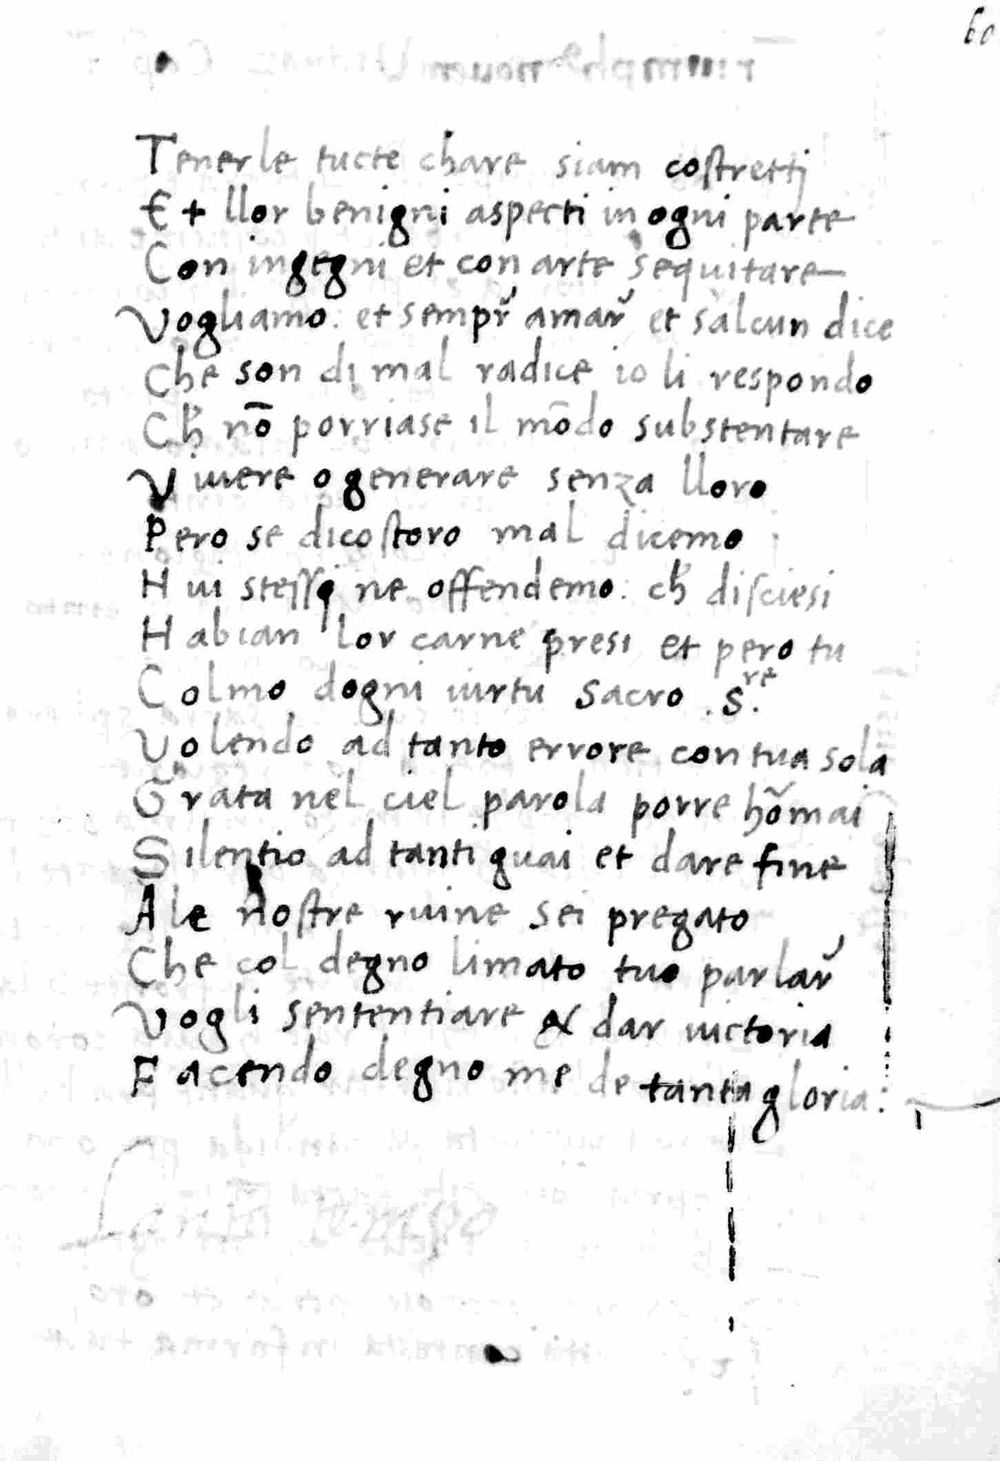 60
Tenerle tucte chare siam costretti
Et llor benigni aspecti in ogni parte
Con ingegni et con arte sequitare
Vogliamo: et sempr̃ amar̃ et salcun dice
Che son di mal radice io li respondo
Ch̃ nõ porriase il mõdo substentare
Viuere o generare senza lloro
Pero se dicostoro mal dicemo
Hui stessi ne offendemo: ch̃ disciesi
Habian lor carne presi et pero tu
Colmo dogni uirtu sacro .S.re
Volendo ad tanto errore con tua sola
Grata nel ciel parola porre hõmai
Silentio ad tanti guai et dare fine
Ale nostre ruine sei pregato
Che col degno limato tuo parlar̃
Vogli sententiare & dar uictoria
Facendo degno me de tanta gloria: